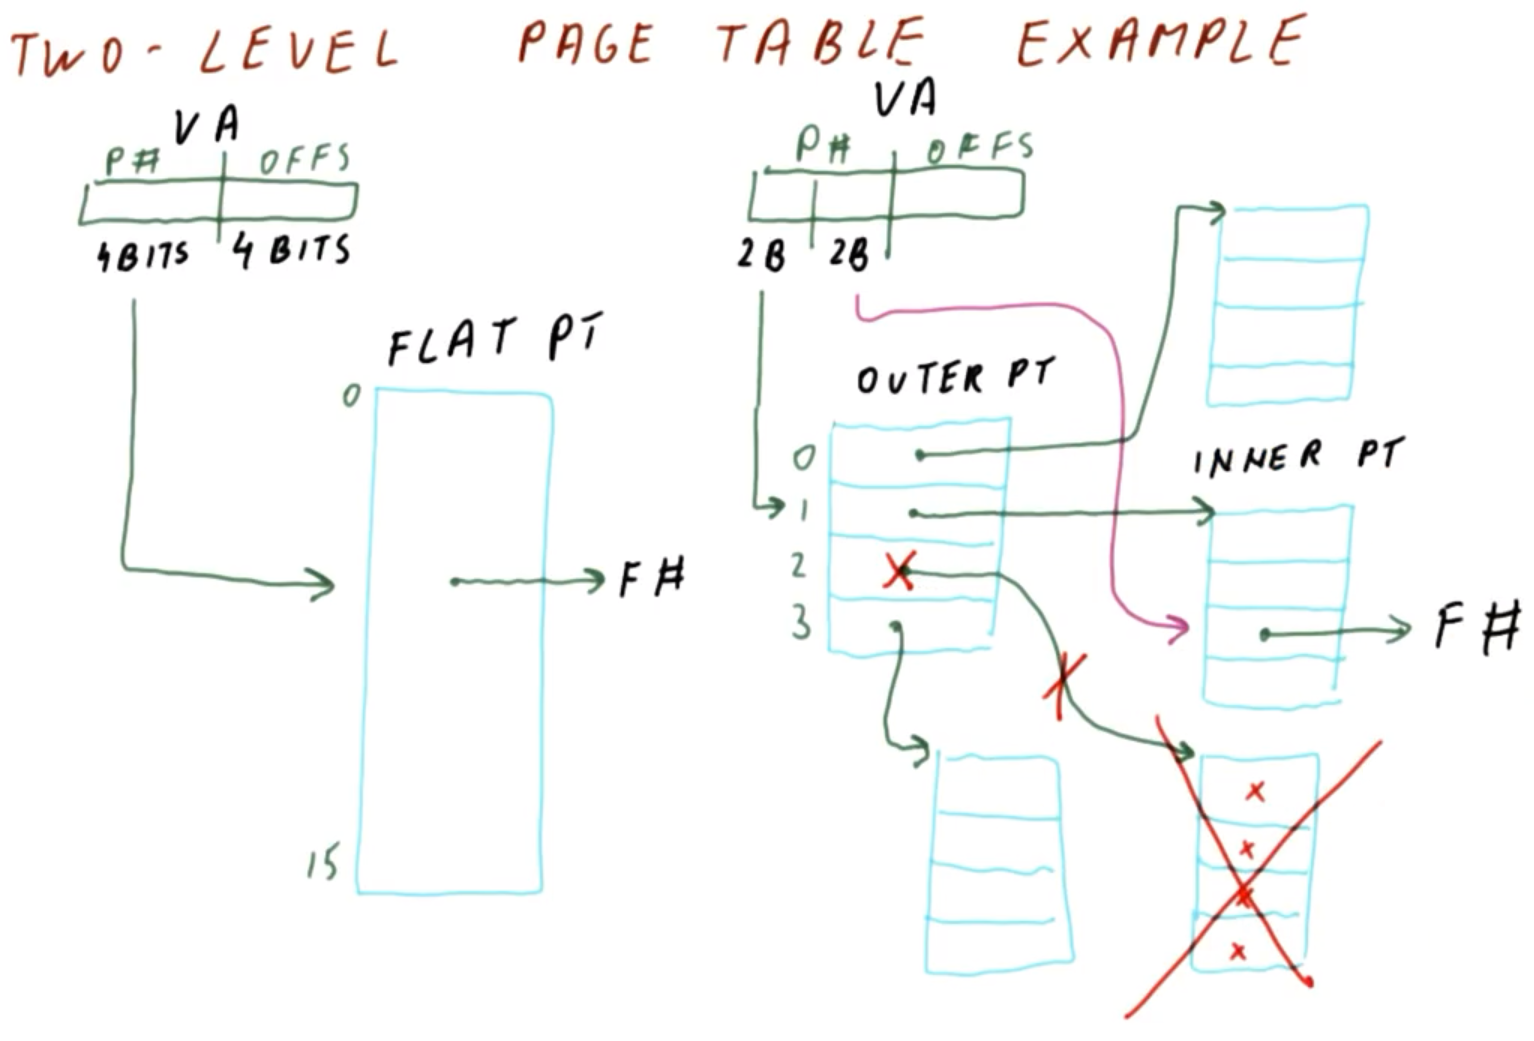 TWO-LEVEL PAGE TABLE EXAMPLE
VA
P# OFFS
4 BITS 4 BITS
FLAT PT
0
15
F#
VA
P# OFFS
2B 2B
OUTER PT
0
1
2
3
INNER PT
F#